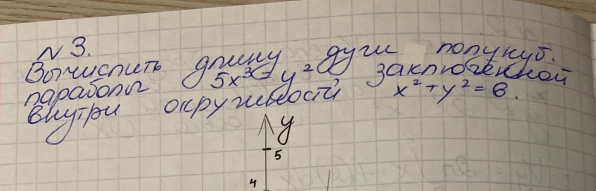 N 3.
Вычислить длину дуги полукуб.
параболы 5x³=y² заключенной
внутри окружности x²+y²=6.
y
5
4